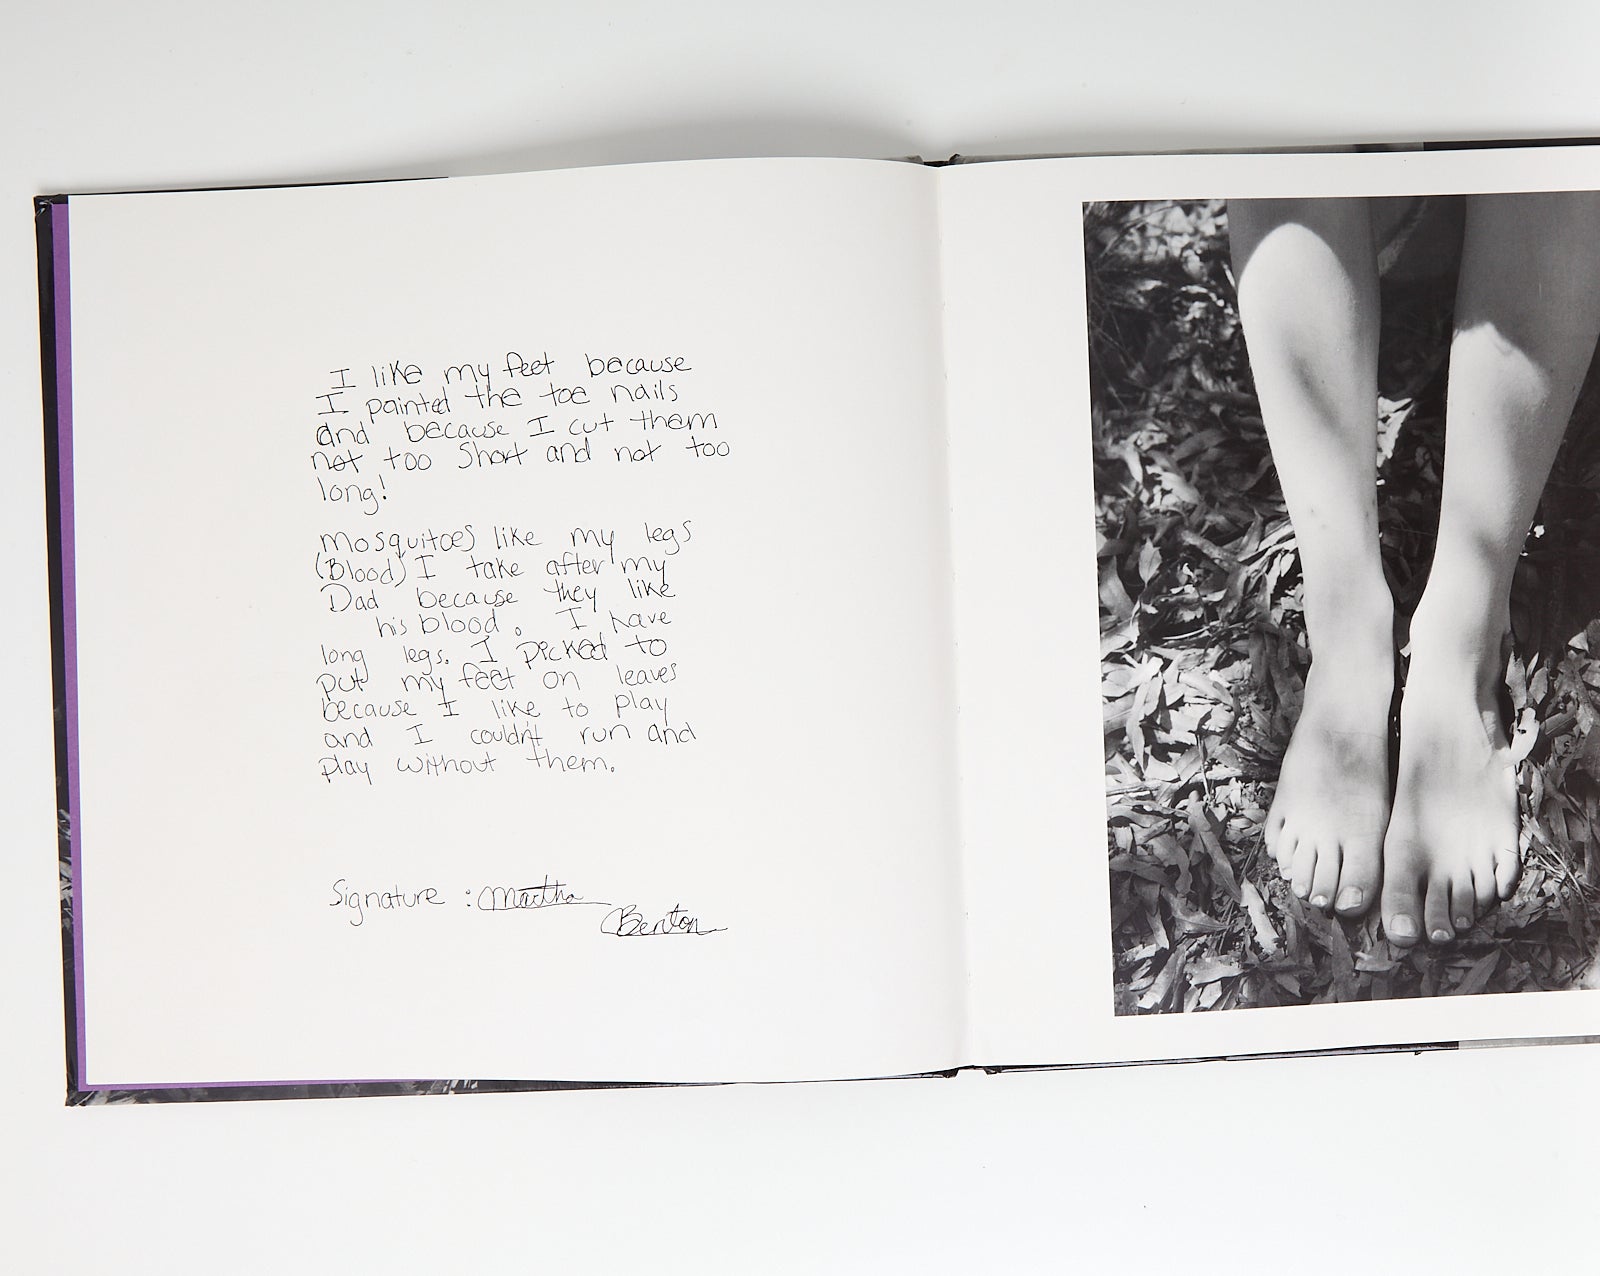 I like my feet because
I painted the toe nails
and because I cut them
not too short and not too
long!
Mosquitoes like my legs
(Blood) I take after my
Dad because they like
his blood. I have
long legs. I picked to
put my feet on leaves
because I like to play
and I couldn't run and
play without them.
Signature : Martha
Benton